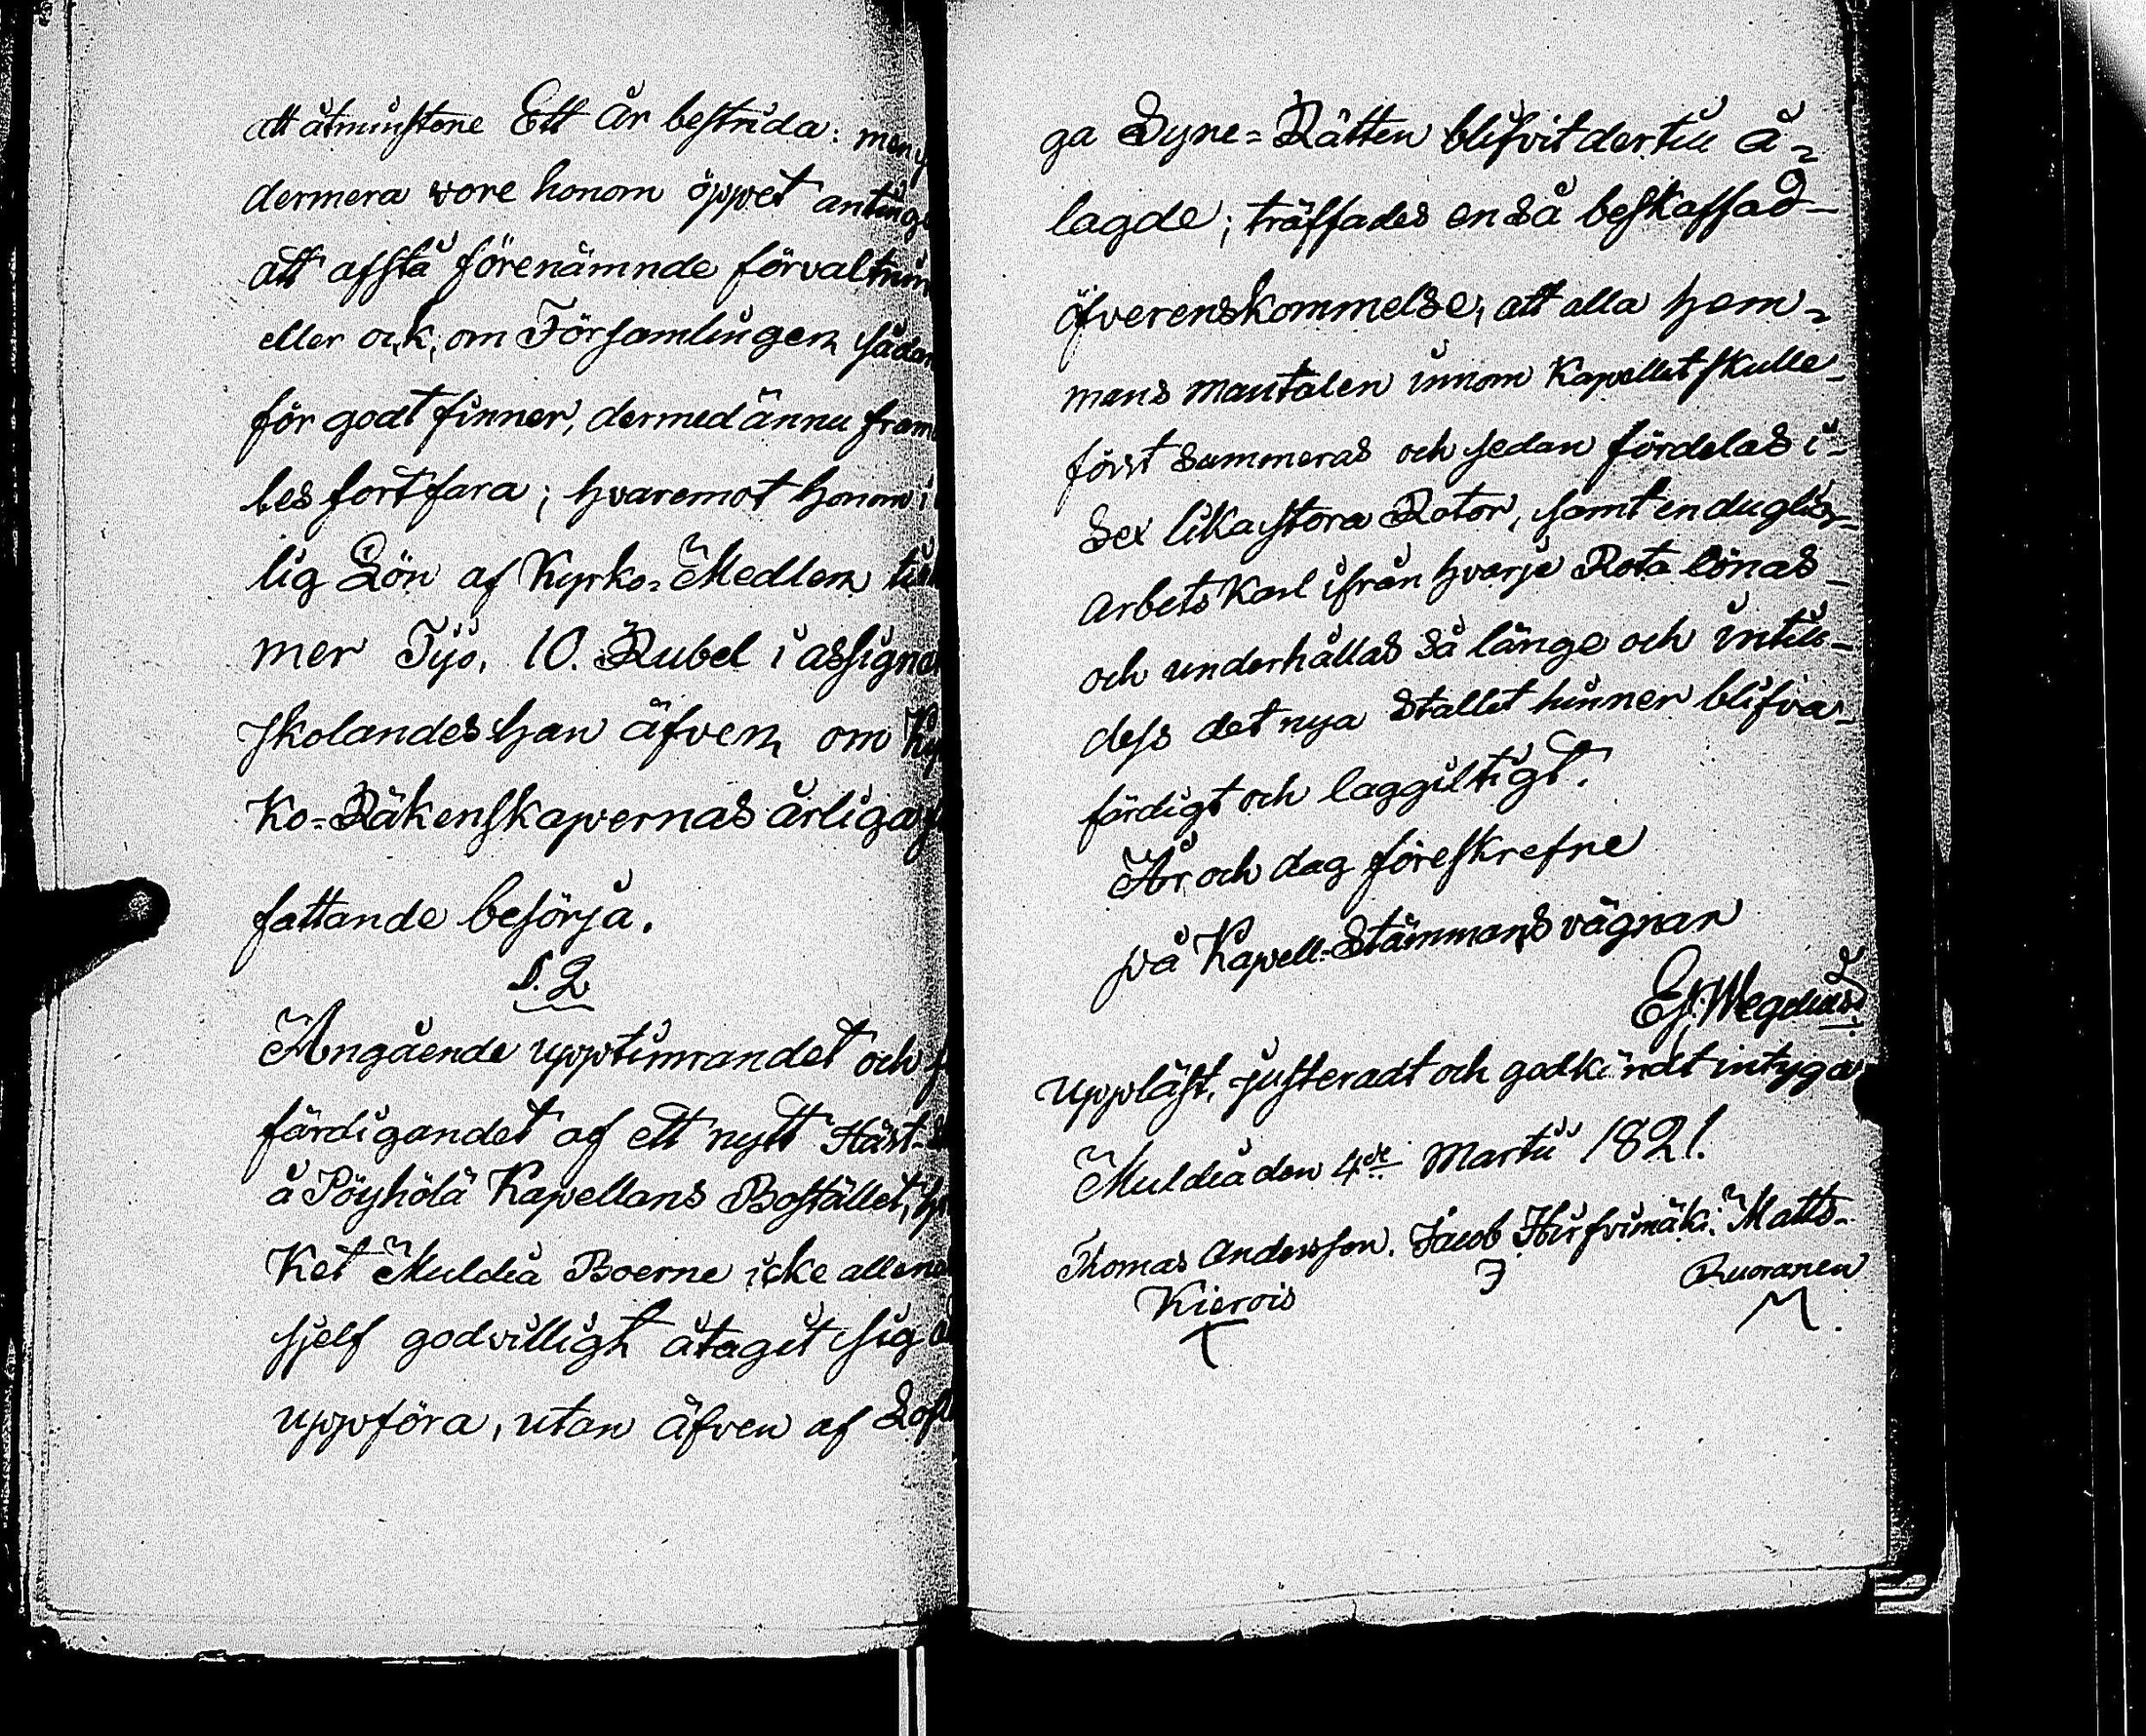 att åtminstone Ett År bestrida: men
dermera vore honom öppet antinge
att afstå förenämnde förvaltnin
eller ock, om Församlingen sådan
för godt finner, dermed ännu fram
les fortfara; hvaremot honom i
lig Lön af Kyrko-Medlem till
mer Tijo, 10. Rubel i assigna
skolandes han äfven om Kyr
ko-Räkenskapernas årliga
fattande besörja.
§. 2
Angående upptimrandet och
färdigandet af ett nytt Häst-
å Pöyhölä Kapellans Bostället, h
ket Muldia Boerne icke allena
sjelf godvilligt åtagit sig
uppföra, utan äfven af Lofl
ga Syne=Rätten blifvit dertill å=
lagde; träffades en så beskaffad
öfverenskommelse, att alla hem=
mans mantalen innom Kapellet skulle
först summeras och sedan fördelas i
Sex lika stora Rotor, samt en duglig
arbets Karl ifrån hvarje Rota lönas
och underhållas så länge och intill
dess det nya Stallet hinner blifva
färdigt och laggiltigt.
År och dag föreskrefne
på Kapell-Stämmans vägnar
Ej. Wegelius
Uppläst, justeradt och godkändt intyga
Muldia den 4de Martii 1821.
Thomas Andersson. Jacob Hirfvimäki. Matts
Kierois J Ruoranen
T M.